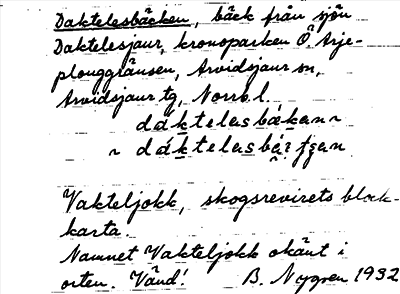 Daktelesbäcken, bäck från sjön
Daktelesjaur, kronoparken Ö. Arje-
plouggränsen, Arvidsjaur sn,
Arvidsjaur tg, Norrb. l.
dáktelesbækan ~
~ dáktelesbæ
Vakteljokk, skogsrevirets block-
karta.
Namnet Vakteljokk okänt i
orten. Vänd! B. Nygren 1932